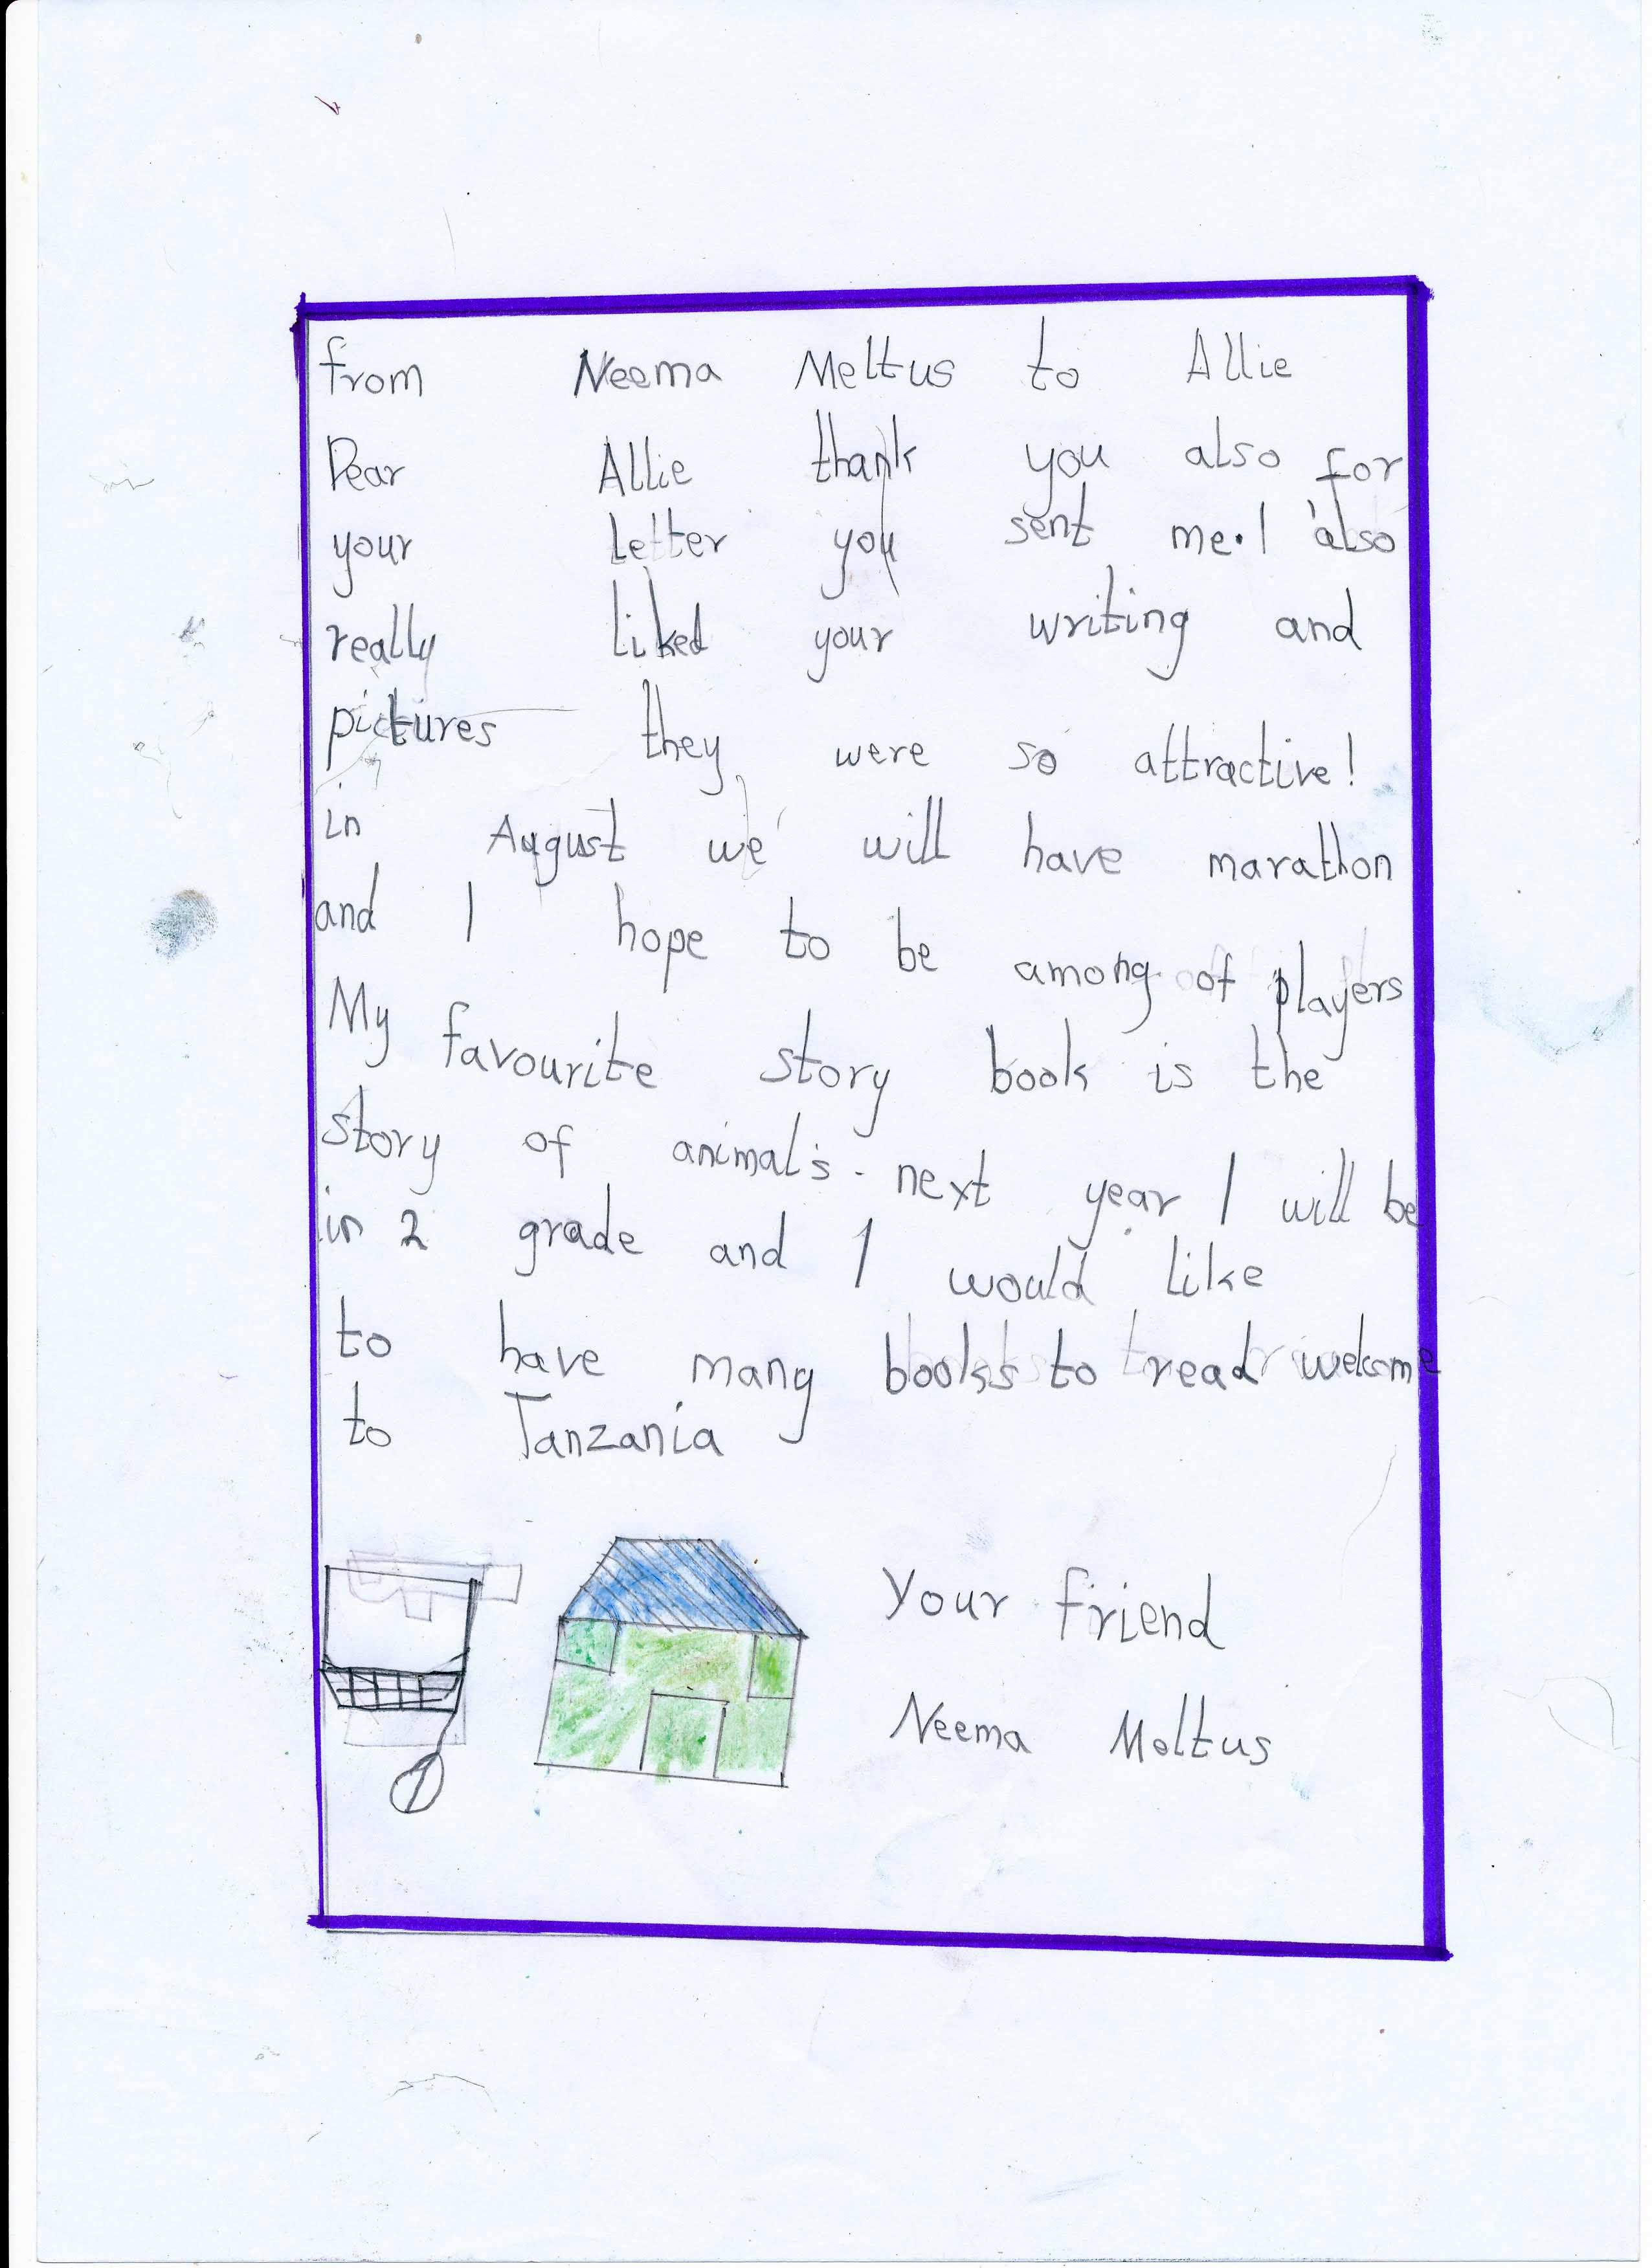 from Neema Meltus to Allie
Dear Allie thank you also for
your letter you sent me. I also
really liked your writing and
pictures they were so attractive!
in August we will have marathon
and I hope to be among of players
My favourite story book is the
story of animals. next year I will be
in 2 grade and I would like
to have many books to read welcome
to Tanzania
Your friend
Neema Meltus